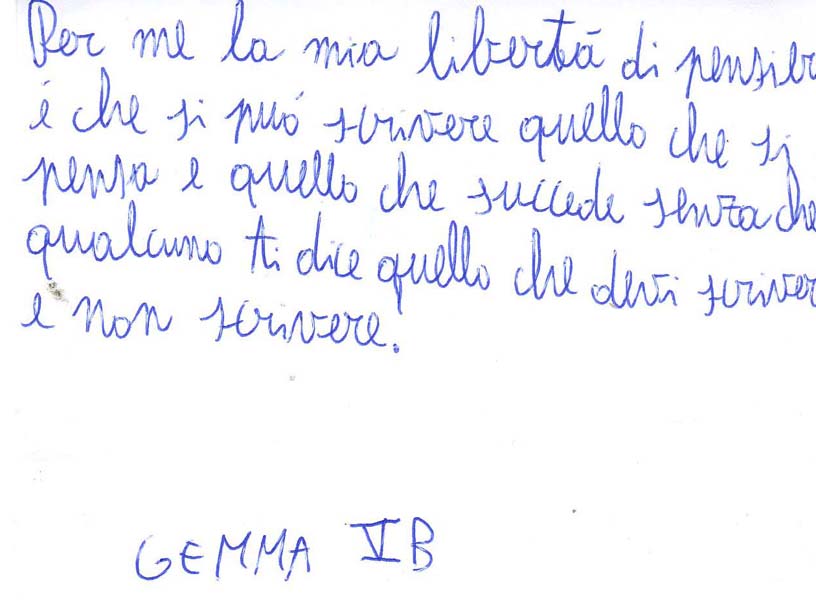 Per me la mia libertá di pensier
é che si puó scrivere quello che si
pensa e quello che succede senza che
qualcuno ti dice quello che devi scriver
e non scrivere.
GEMMA VB